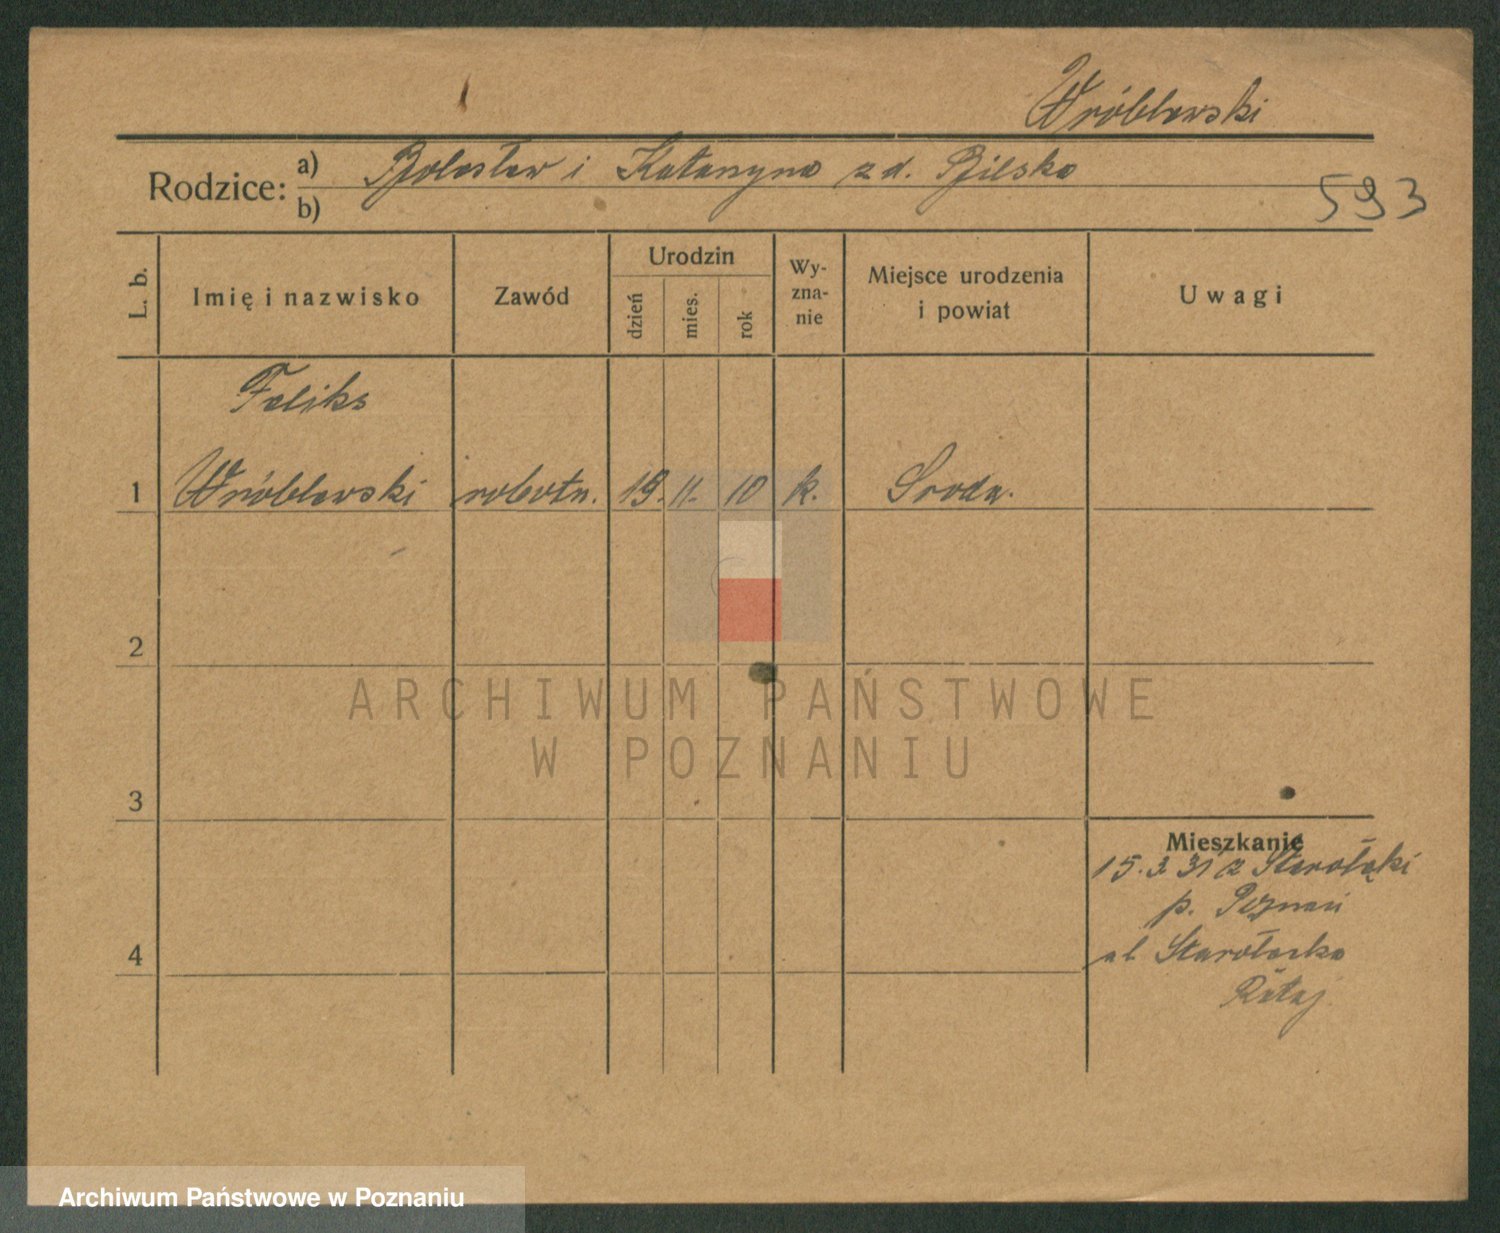 Wróblewski
Rodzice: a) Bolesław i Katarzyna z d. Bilska
b)
593
L. b. Imię i nazwisko Zawód Urodzin dzień mies. rok Wy-zna-nie Miejsce urodzenia i powiat Uwagi
Feliks
1 Wróblewski robotn. 19. 11. 10 k. Sroda.
2
ARCHIWUM PAŃSTWOWE
W POZNANIU
3
Mieszkanie
15. 3. 31 z Starołęki
p. Poznań
4 ul Starołęcka
Rataj
Archiwum Państwowe w Poznaniu